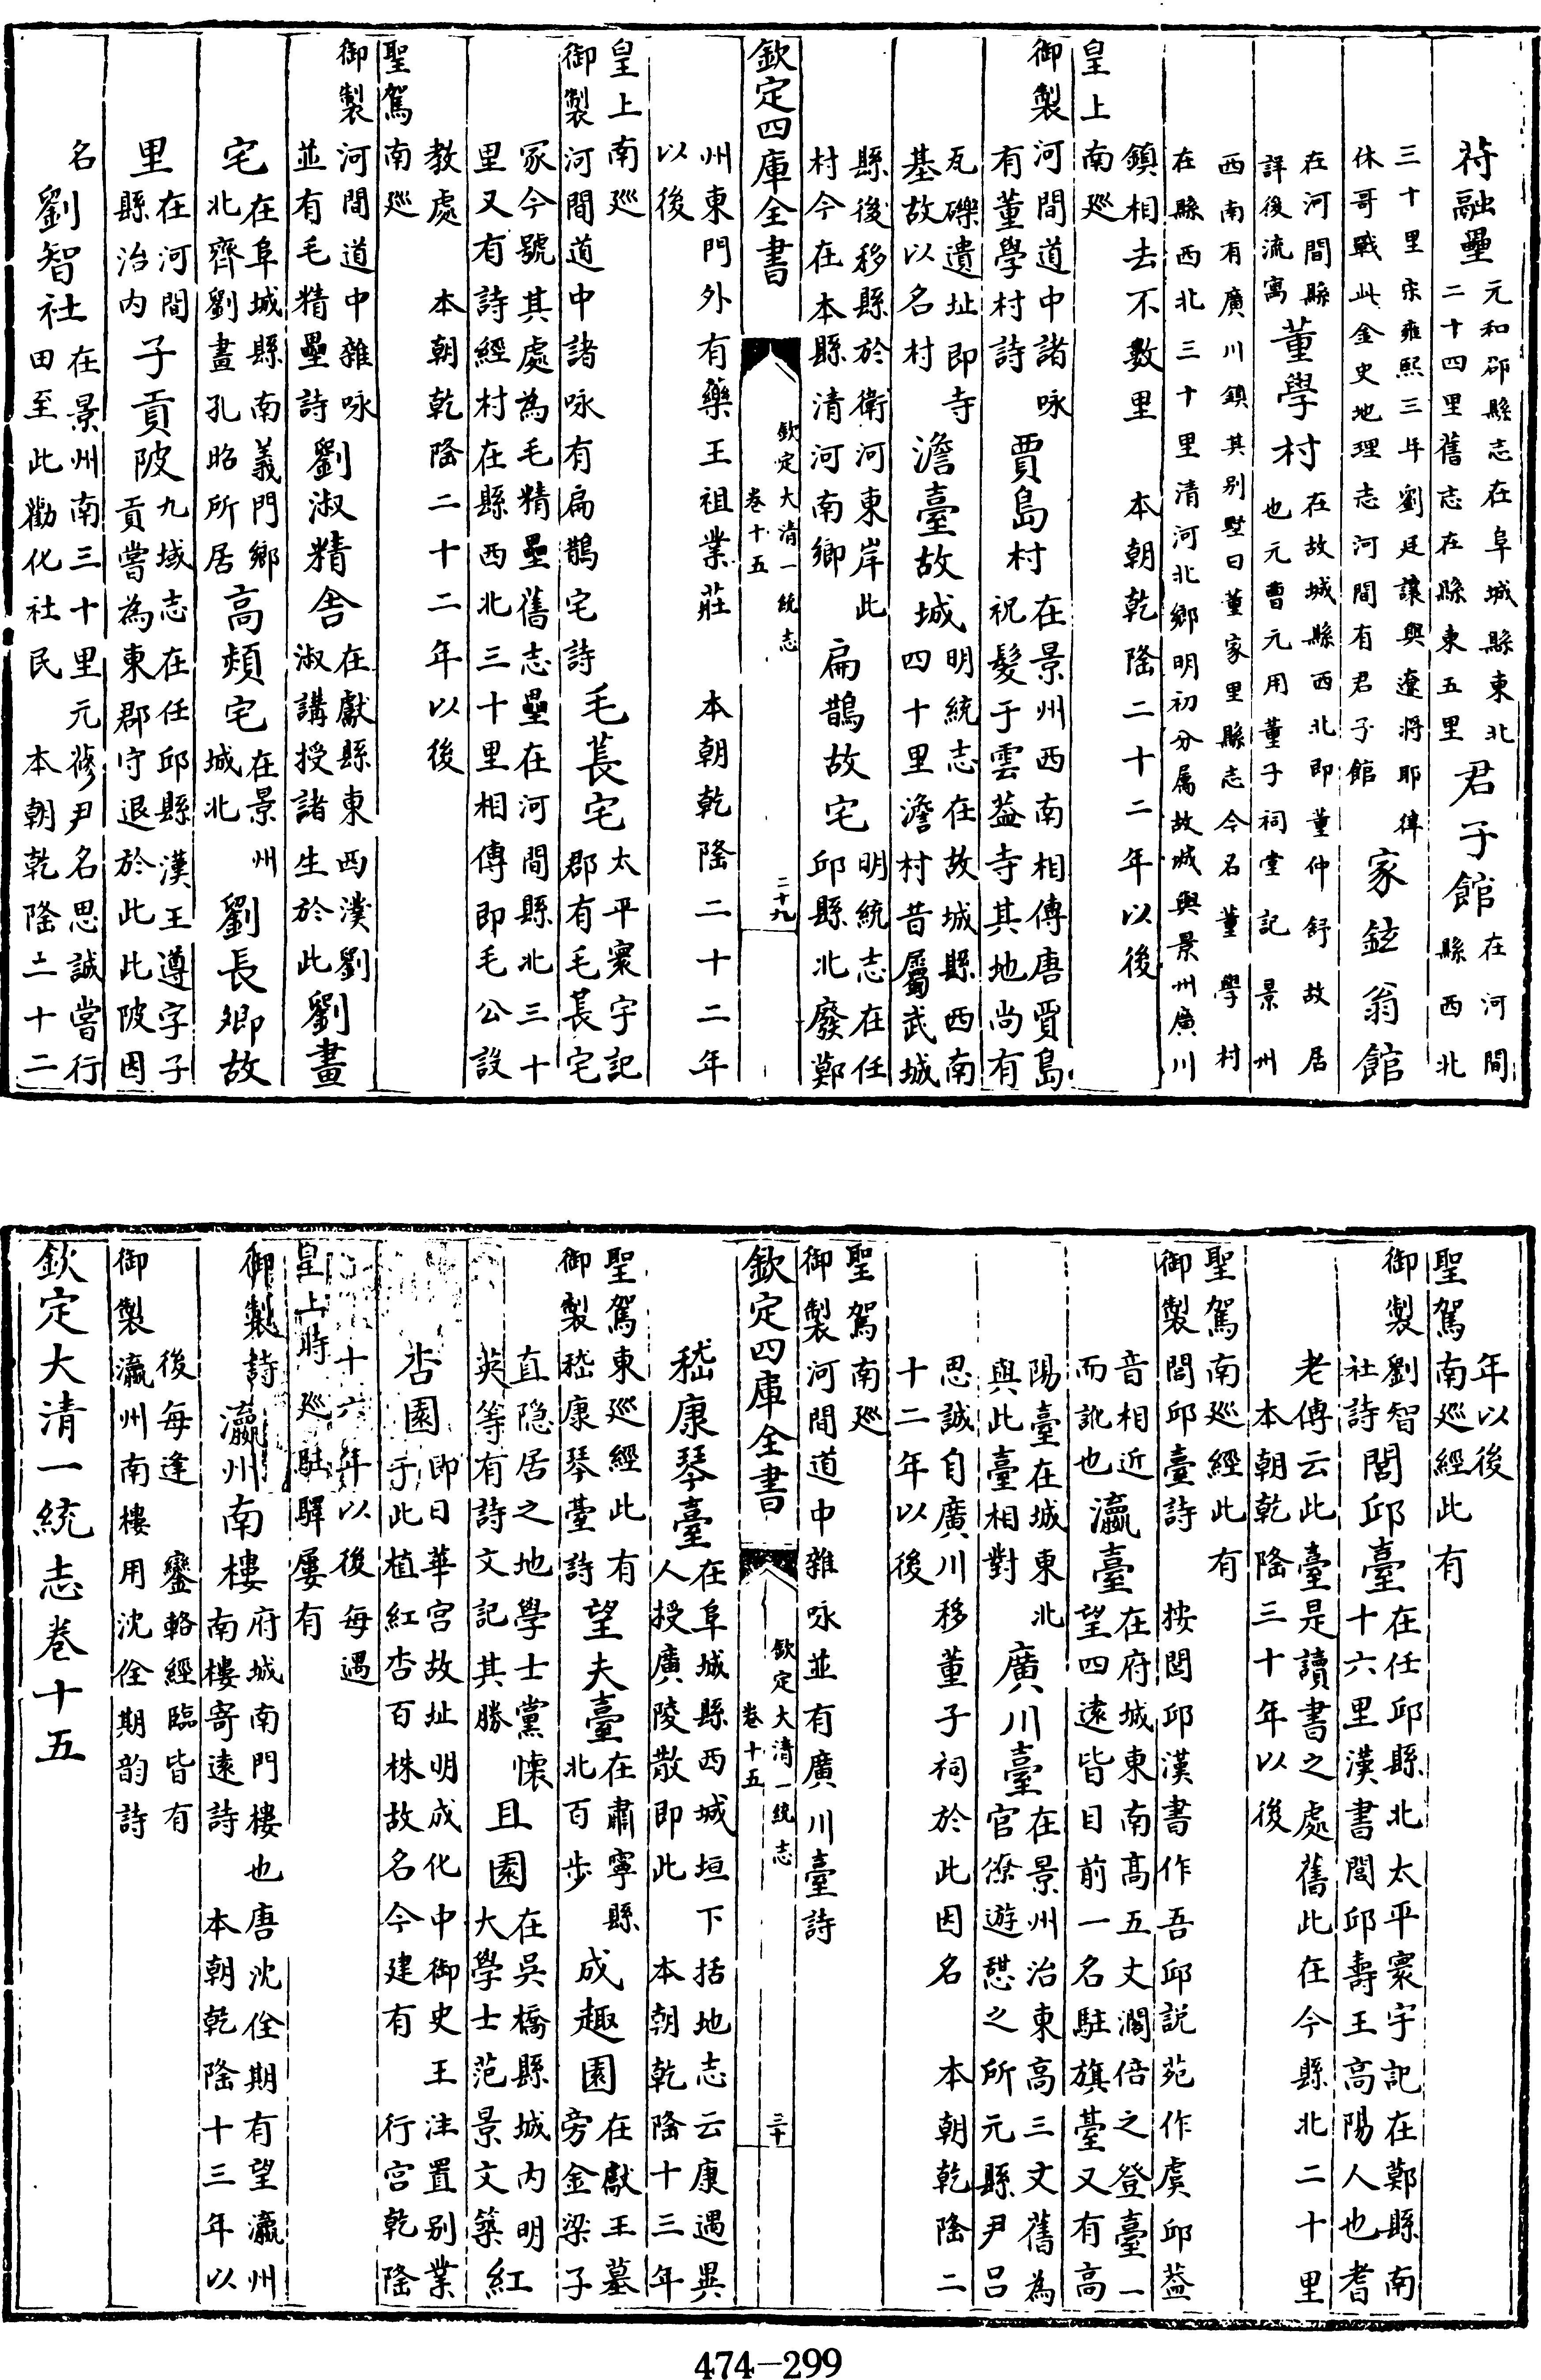 苻融壘元和郡縣志在阜城縣東北二十四里舊志在縣東五里君子館在河間縣西北
三十里宋雍熙三年劉廷讓與遼將耶律休哥戰此金史地理志河間有君子館家鉉翁館
在河間縣詳後流寓董學村在故城縣西北即董仲舒故居也元曹元用董子祠堂記景州
西南有廣川鎮其别墅曰董家里縣志今名董學村在縣西北三十里清河北鄉明初分属故城與景州廣川
鎮相去不數里 本朝乾隆二十二年以後
皇上南廵
御製河間道中諸咏有董學村詩賈島村在景州西南相傳唐賈島祝髮于雲葢寺其地尚有
瓦礫遺址即寺基故以名村澹臺故城明統志在故城縣西南四十里澹村昔屬武城
縣後移縣於衛河東岸此村今在本縣清河河南鄉扁鵲故宅明統志在任邱縣北廢鄚
欽定四庫全書
欽定大清一統志
卷十五
二十九
州東門外有藥王祖業莊 本朝乾隆二十二年以後
皇上南廵
御製河間道中諸咏有扁鵲宅詩毛萇宅太平寰宇記郡有毛萇宅
冢今號其處為毛精壘舊志壘在河間縣北三十里又有詩經村在縣西北三十里相傳即毛公設
教處 本朝乾隆二十二年以後
聖駕南廵
御製河間道中雜咏並有毛精壘詩劉淑精舍在獻縣東西漢劉淑講授諸生於此劉晝
宅在阜城縣南義門鄉北齊劉晝孔昭所居高熲宅在景州城北劉長卿故
里在河間縣治内子貢陂九域志在任邱縣漢王遵字子貢嘗為東郡守退於此此陂因
名劉智社在景州南三十里元蓨尹名思誠嘗行田至此勸化社民 本朝乾隆二十二
年以後
聖駕南廵經此有
御製劉智社詩閭邱臺在任邱縣北太平寰宇記在鄚縣南十六里漢書閭邱壽王高陽人也耆
老傳云此臺是讀書之處舊此在今縣北二十里 本朝乾隆三十年以後
聖駕南廵經此有
御製閭邱臺詩 按閭邱漢書作吾邱説苑作虞邱葢
音相近而訛也瀛臺在府城東南高五丈濶倍之登臺一望四遠皆目前一名駐旗臺又有高
陽臺在城東北與此臺相對廣川臺在景州治東高三丈舊為官僚遊憇之所元縣尹吕
思誠自廣川移董子祠於此因名 本朝乾隆二十二年以後
聖駕南廵
御製河間道中雜咏並有廣川臺詩
欽定四庫全書
欽定大清一統志
卷十五
三十
嵇康琴臺在阜城縣西城垣下括地志云康遇異人授廣陵散即此 本朝乾隆十三年
聖駕東廵經此有
御製嵇康琴臺詩望夫臺在肅寧縣北百步成趣園在獻王墓旁金梁子
直隐居之地學士黨懷英等有詩文記其勝且園在吳橋縣城内明大學士范景文築紅
杏園即日華宫故址明成化中御史王注置别業于此植紅杏百株故名今建有 行宫乾隆
十六年以後每遇
皇上時廵駐驛屢有
御製詩瀛州南樓府城南門樓也唐沈佺期有望瀛州南樓寄遠詩 本朝乾隆十三年以
後每逢 鑾輅經臨皆有
御製瀛州南樓用沈佺期韵詩
欽定大清一統志卷十五
474—299